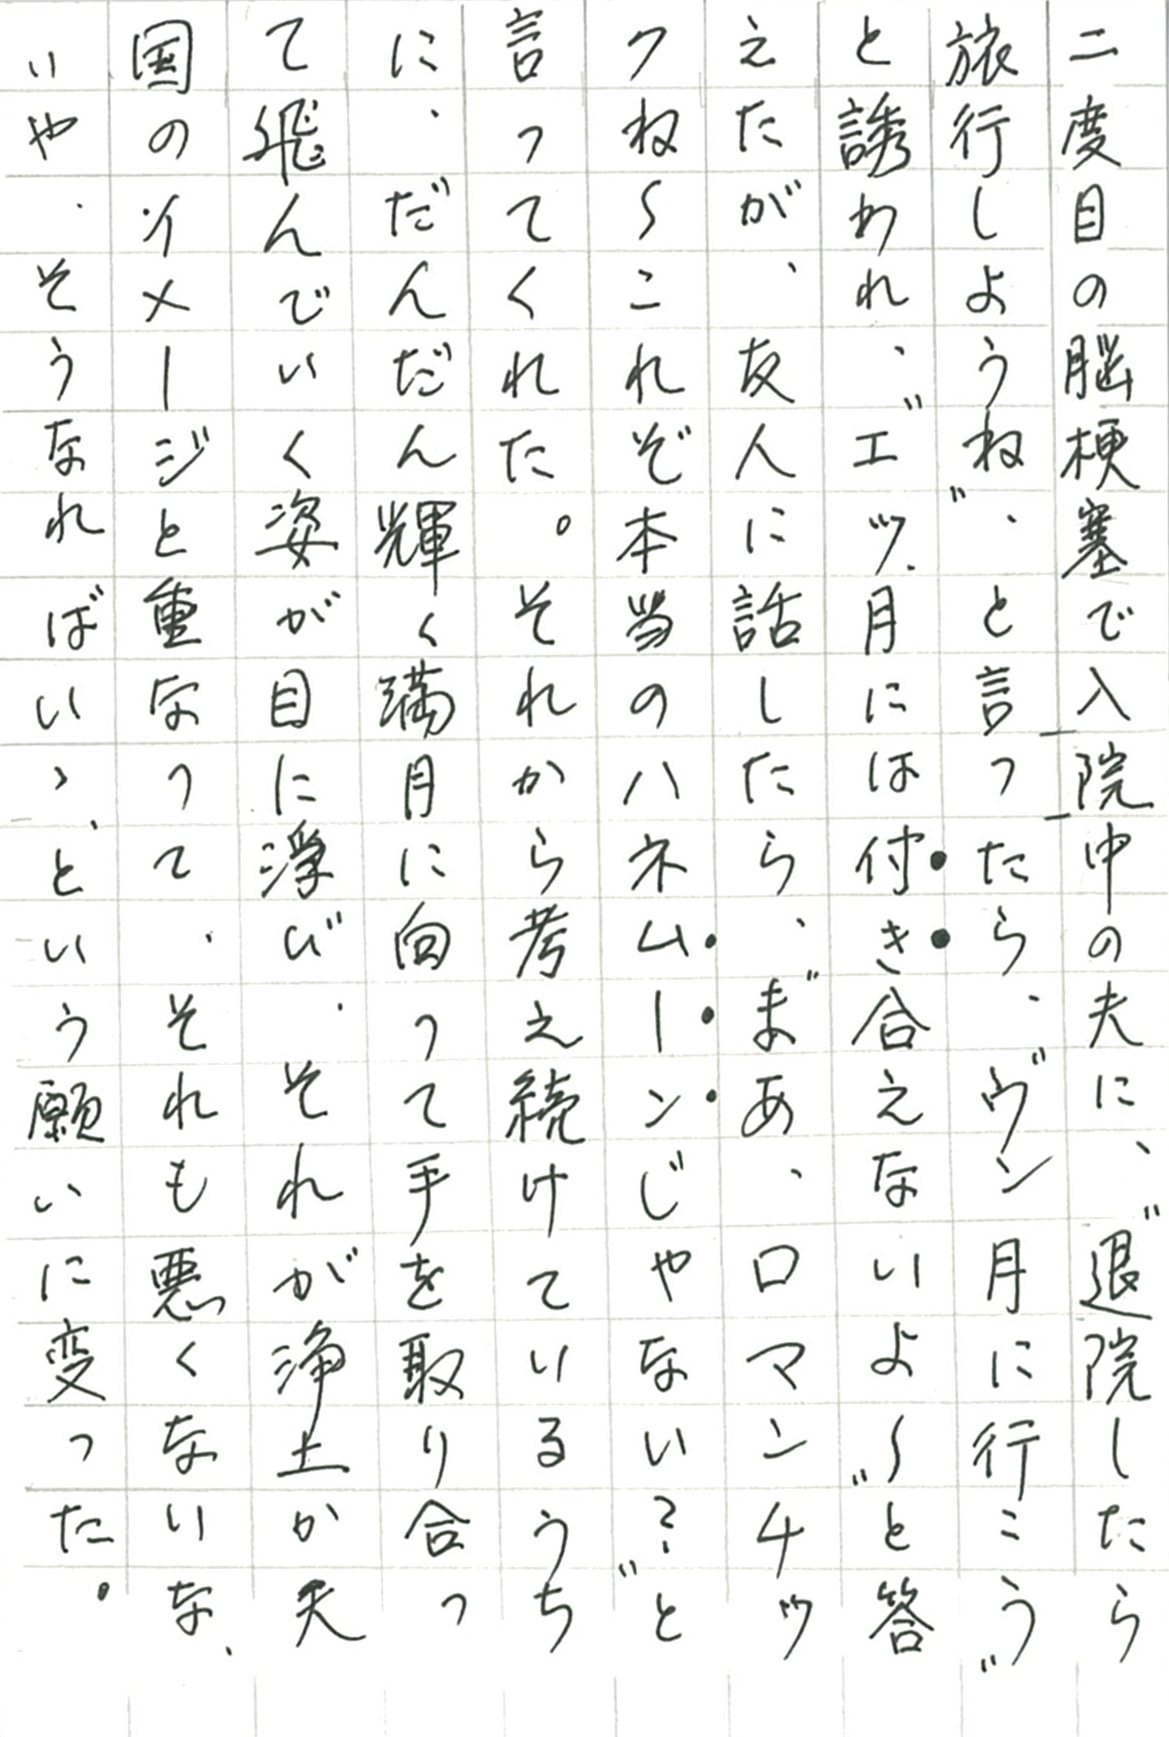 二度目の脳梗塞で入院中の夫に、〝退院したら
旅行しようね〟、と言ったら、〝ヴン月に行こう〟
と誘われ、〝エッ、月には付き合えないよ〜〟と答
えたが、友人に話したら、〝まあ、ロマンチッ
クね〜これぞ本当のハネムーンじゃない？〟と
言ってくれた。それから考え続けているうち
に、だんだん輝く満月に向って手を取り合っ
て飛んでいく姿が目に浮び、それが浄土か天
国のイメージと重なって、それも悪くないな、
いや、そうなればいゝ、という願いに変った。